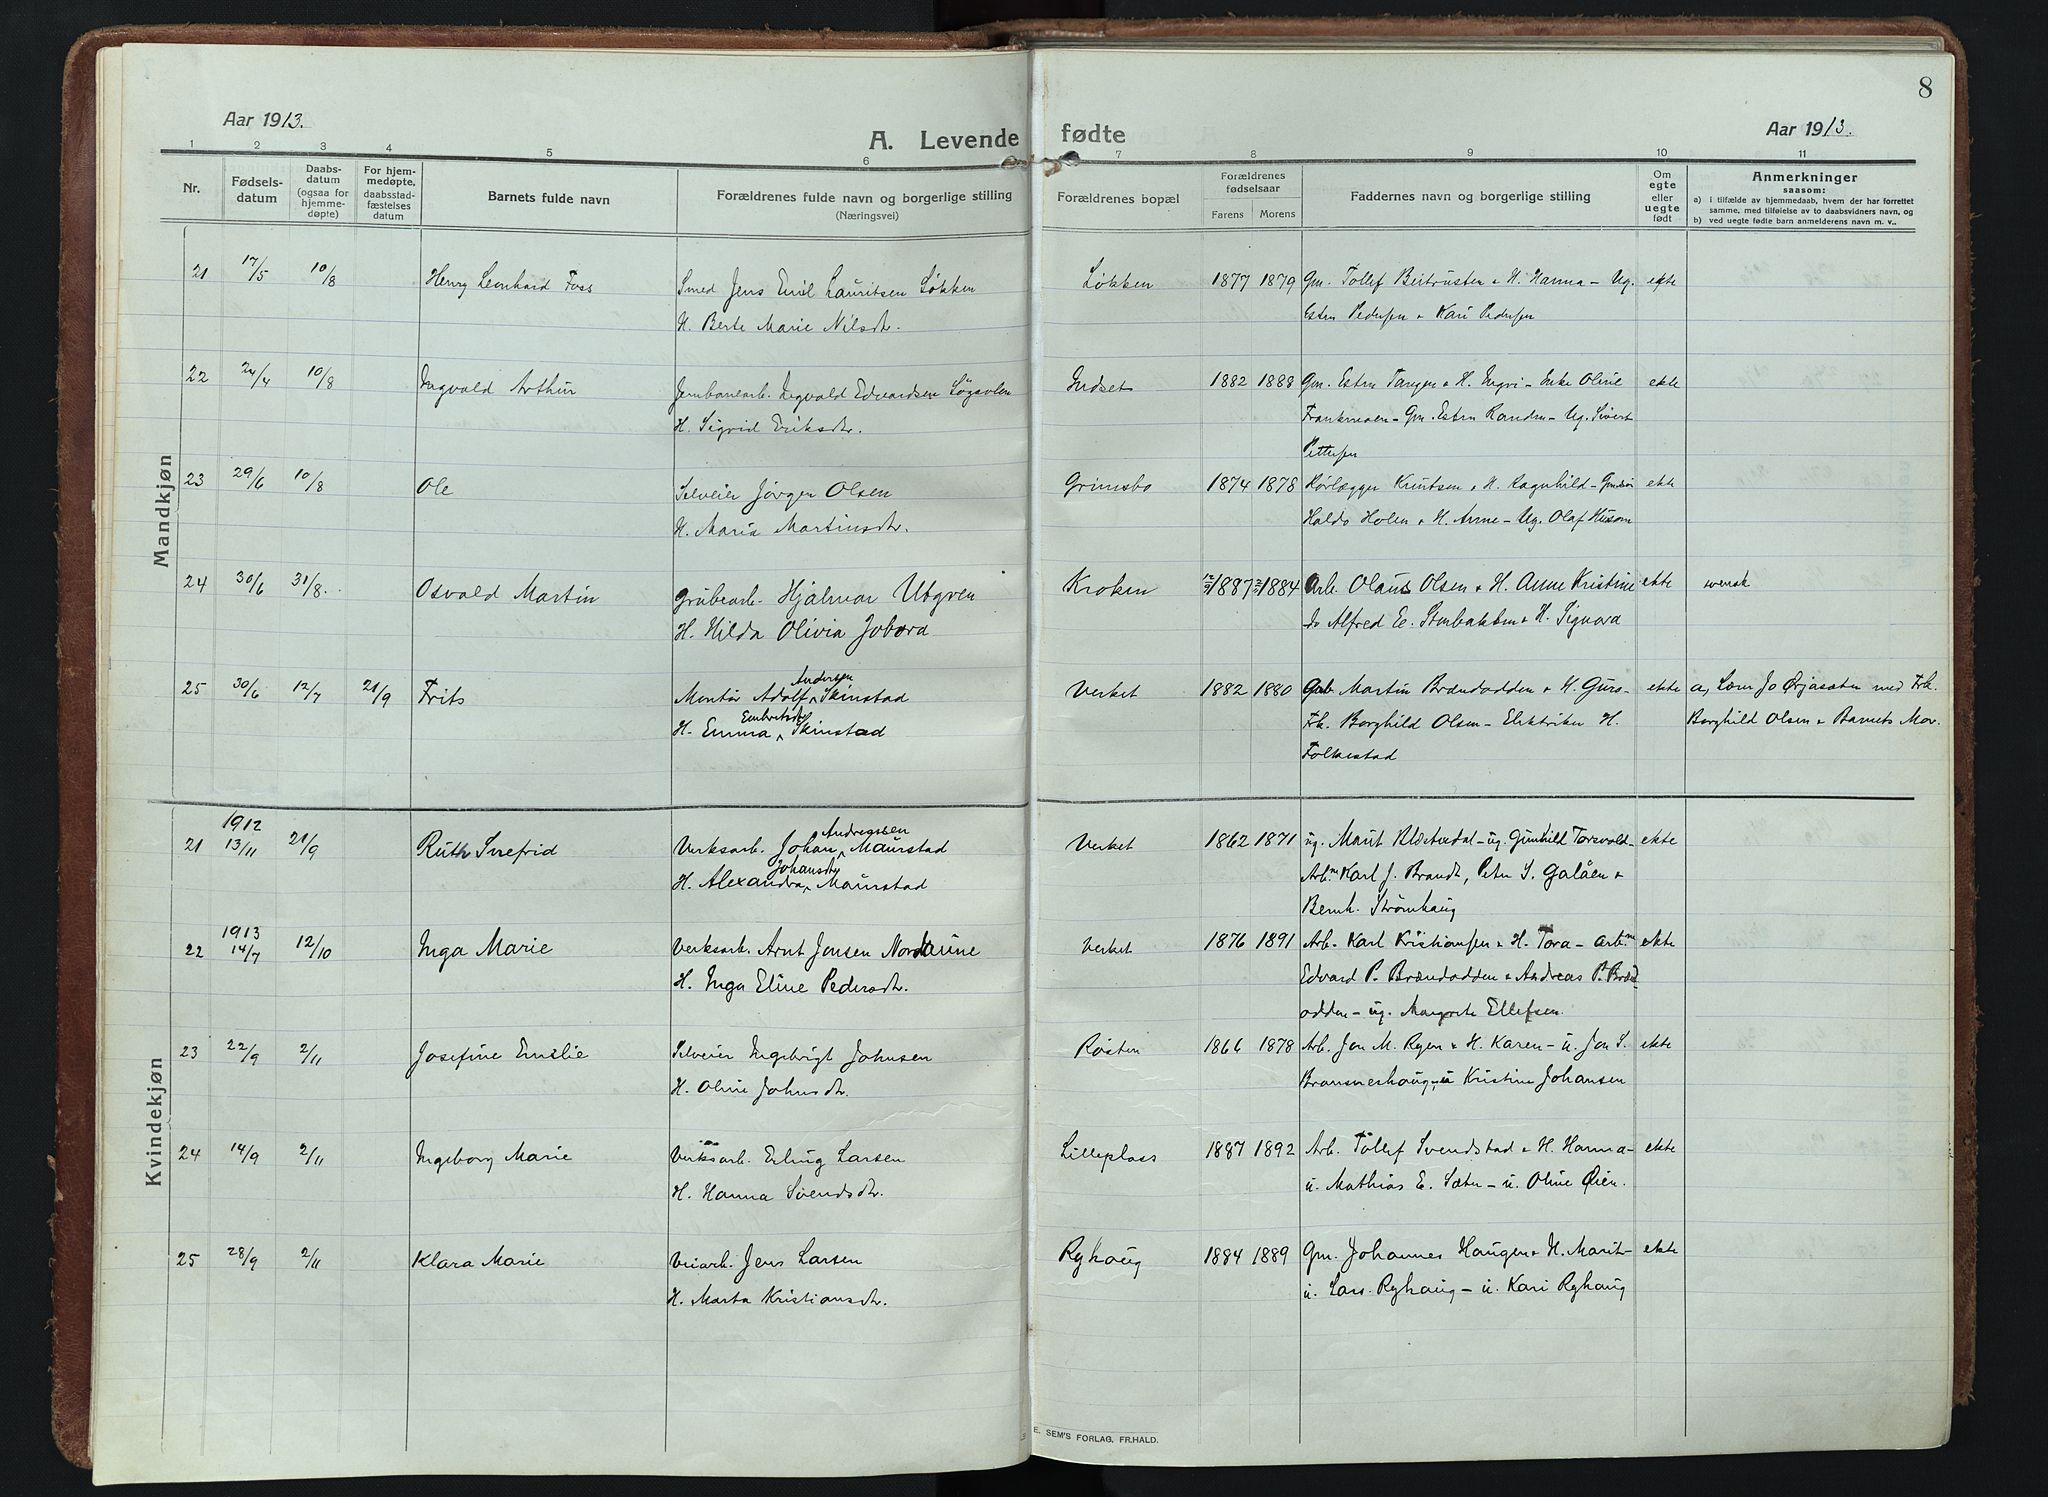 8
Aar 1913.
A. Levende fødte
Aar 1913.
1 2 3 4 5 6 7 8 9 10 11
Nr.
Fødselsdatum
Daabsdatum (ogsaa for hjemmedøpte)
For hjemmedøpte, daabsstadfæstelses datum
Barnets fulde navn
Forældrenes fulde navn og borgerlige stilling
(Næringsvei)
Forældrenes bopæl
Forældrenes fødselsaar
Farens Morens
Faddernes navn og borgerlige stilling
Om egte eller uegte født
Anmerkninger
saasom:
a) i tilfælde av hjemmedaab, hvem der har forrettet
samme, med tilføielse av to daabsvidners navn, og
b) ved uegte fødte barn anmelderens navn m. v..
Mandkjøn
21 17/5 10/8 Henry Leonhard Foss Smed Jens Emil Lauritsen Løkken Løkken 1877 1879 Gm. Tollef Beitrusten & H. Hanna - Ug. ekte
H. Berte Marie Nilsdtr. Esten Pedersen & Kari Pedersen
22 24/4 10/8 Ingvald Arthur Jernbanearb. Ingvald Edvardsen Indset 1882 1888 Gm. Esten Tangen & H. Ingri - Enke Oline ekte
H. Sigrid Eriksdtr. Gm. Esten Randen - Ug. Sivert
Pettersen
23 29/6 10/8 Ole Selveier Jørgen Olsen Grimsbo 1874 1878 Rørlægger Knutsen & H. Ragnhild - ekte
H. Maria Martinsdtr. Haldo Holen & H. Anne - Ug. Olaf Husom
24 30/6 31/8. Osvald Martin Grubearb. Hjalmar Utgren Kroken 1887 1884 Arb. Olaus Olsen & H. Anne Kristine ekte svensk
H. Hilda Olivia Joborg do Alfred E. Stenbakken & H. Signora
25 30/6 12/7 21/9 Frits Montør Adolf Andersen Skinstad Verket 1882 1880 Martin Brændadden & H. Gurs- ekte a, Lærer Jo Ørjasæter med Frk.
H. Emma Embretsdtr Skinstad Frk. Borghild Olsen - Elektriker H. Borghild Olsen & Barnets Mor.
Folkestad
Kvindekjøn
1912
21 13/11 21/9 Ruth Snefrid Verksarb. Johan Andreassen Maurstad Verket 1862 1871 ug. Marit Klætendal - ug. Gunhild Torsvold - ekte
H. Alexandra Johansdtr Maurstad Arbm Karl J. Brandt, Peter S. Galåen &
Bernh. Strømhaug
1913
22 14/7 12/10 Inga Marie Verksarb. Arnt Jensen Verket 1876 1891 Arb. Karl Kristiansen & H. Tora - arbm ekte
H. Inga Eline Pedersdtr. Edvard P. Brændadden & Andreas P. Bræd-
adden - ug. Margrete Ellefsen.
23 22/9 2/11 Josefine Emilie Selveier Ingebrigt Johnsen Røsten 1866 1878 Arb. Jon M. Ryen & H. Karen - u. Jon S. ekte
H. Oline Johnsdtr. u Kristine Johansen
24 14/9 2/11 Ingeborg Marie Verksarb. Erling Larsen Lilleplass 1887 1892 Arb. Tollef Svendstad & H. Hanna - ekte
H. Hanna Svendsdtr. u. Mathias E. Sæter - u. Oline Øien.
25 28/9 2/11 Klara Marie Veiarb. Jens Larsen Ryhaug 1884 1889 Gm. Johannes Haugen & H. Marit - ekte
H. Marta Kristiansdtr. u. Lars Ryhaug - u. Kari Ryhaug
E. SEM'S FORLAG, FR.HALD.